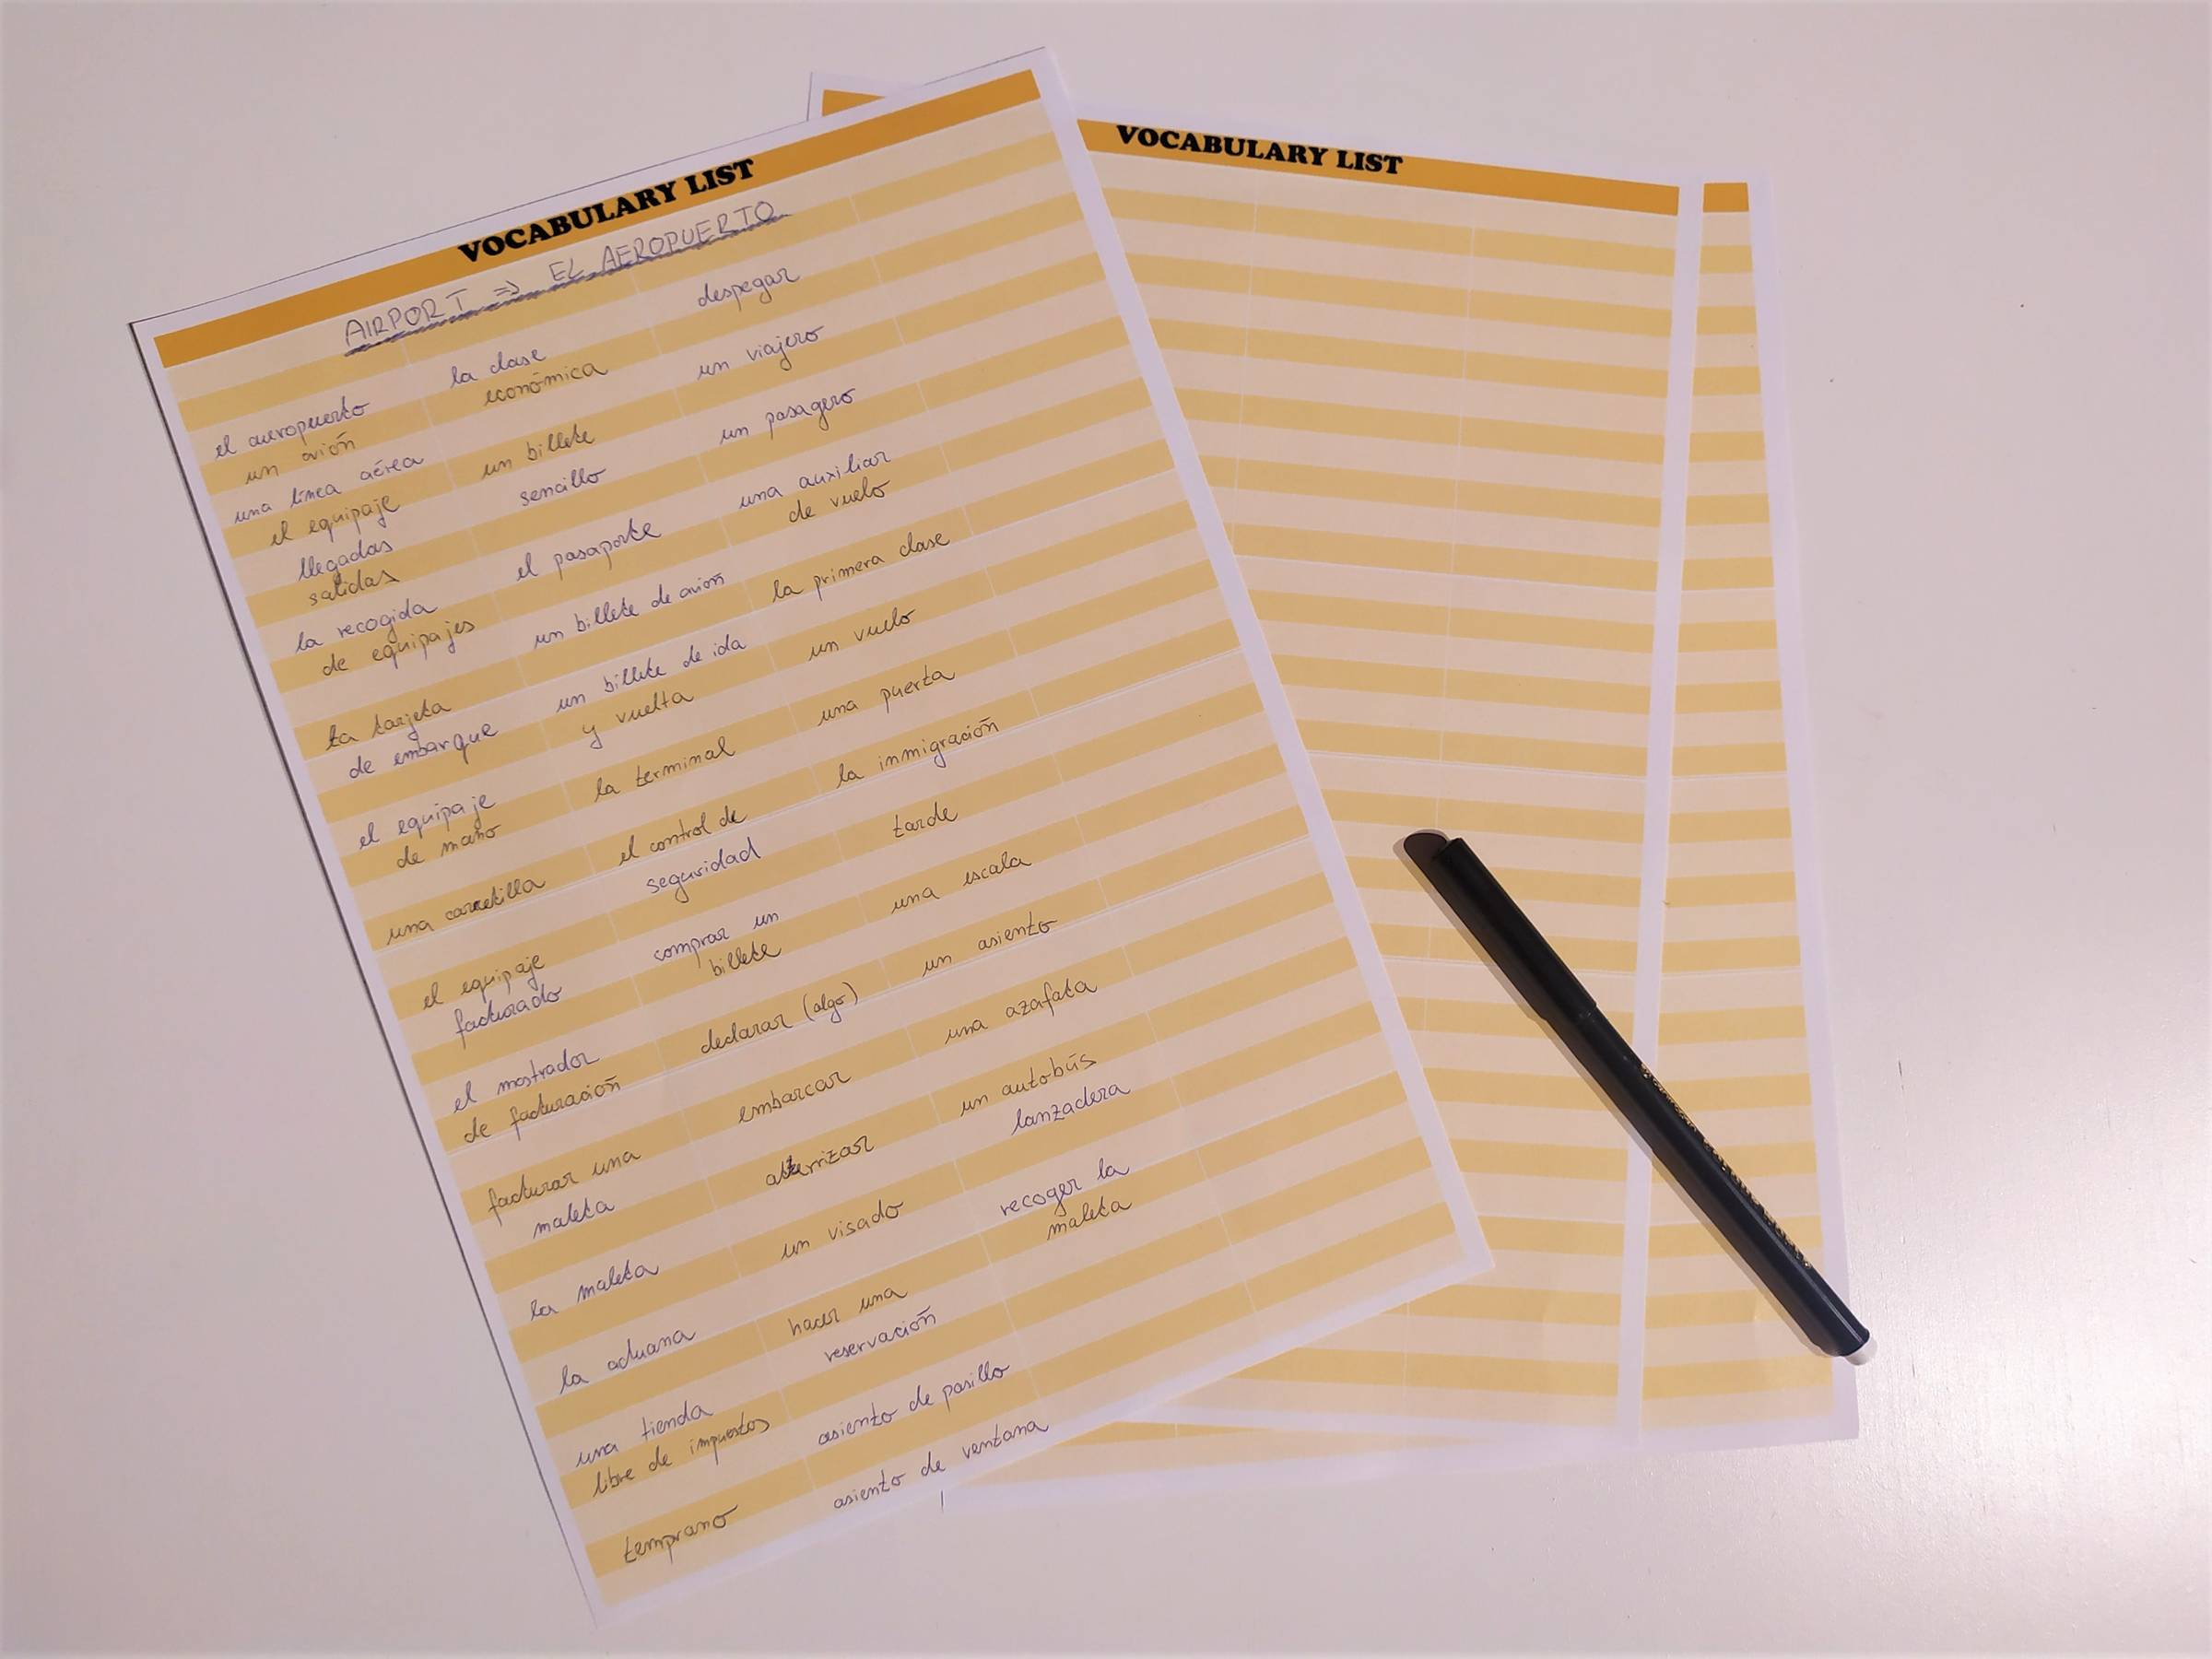 VOCABULARY LIST
AIRPORT => EL AEROPUERTO
el aeropuerto
un avión
una línea aérea
el equipaje
llegadas
salidas
la recogida
de equipajes
la tarjeta
de embarque
el equipaje
de mano
una carretilla
el equipaje
facturado
el mostrador
de facturación
facturar una
maleta
la maleta
la aduana
una tienda
libre de impuestos
temprano
la clase
económica
un billete
sencillo
el pasaporte
un billete de avión
un billete de ida
y vuelta
la terminal
el control de
seguridad
comprar un
billete
declarar (algo)
embarcar
aterrizar
un visado
hacer una
reservación
asiento de pasillo
asiento de ventana
despegar
un viajero
un pasagero
una auxiliar
de vuelo
la primera clase
un vuelo
una puerta
la inmigración
tarde
una escala
un asiento
una azafata
un autobús
lanzadera
recoger la
maleta
VOCABULARY LIST